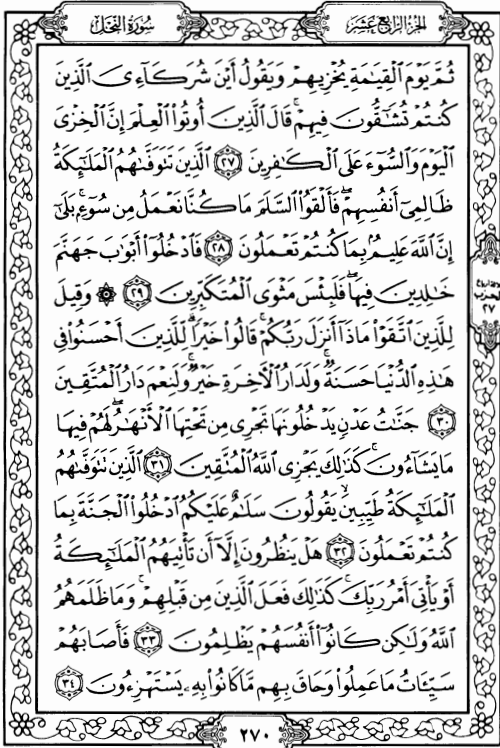 الجزء الرابع عشر
سورة النحل
ثُمَّ يَوْمَ ٱلْقِيَٰمَةِ يُخْزِيهِمْ وَيَقُولُ أَيْنَ شُرَكَآءِىَ ٱلَّذِينَ
كُنتُمْ تُشَٰٓقُّونَ فِيهِمْ ۚ قَالَ ٱلَّذِينَ أُوتُوا۟ ٱلْعِلْمَ إِنَّ ٱلْخِزْىَ
ٱلْيَوْمَ وَٱلسُّوٓءَ عَلَى ٱلْكَٰفِرِينَ ﴿٢٧﴾ ٱلَّذِينَ تَتَوَفَّىٰهُمُ ٱلْمَلَٰٓئِكَةُ
ظَالِمِىٓ أَنفُسِهِمْ ۖ فَأَلْقَوُا۟ ٱلسَّلَمَ مَا كُنَّا نَعْمَلُ مِن سُوٓءٍۭ ۚ بَلَىٰٓ
إِنَّ ٱللَّهَ عَلِيمٌۢ بِمَا كُنتُمْ تَعْمَلُونَ ﴿٢٨﴾ فَٱدْخُلُوٓا۟ أَبْوَٰبَ جَهَنَّمَ
خَٰلِدِينَ فِيهَا ۖ فَلَبِئْسَ مَثْوَى ٱلْمُتَكَبِّرِينَ ﴿٢٩﴾ ۞ وَقِيلَ
لِلَّذِينَ ٱتَّقَوْا۟ مَاذَآ أَنزَلَ رَبُّكُمْ ۚ قَالُوا۟ خَيْرًا ۗ لِّلَّذِينَ أَحْسَنُوا۟ فِى
هَٰذِهِ ٱلدُّنْيَا حَسَنَةٌ ۚ وَلَدَارُ ٱلْءَاخِرَةِ خَيْرٌ ۚ وَلَنِعْمَ دَارُ ٱلْمُتَّقِينَ
﴿٣٠﴾ جَنَّٰتُ عَدْنٍ يَدْخُلُونَهَا تَجْرِى مِن تَحْتِهَا ٱلْأَنْهَٰرُ ۖ لَهُمْ فِيهَا
مَا يَشَآءُونَ ۚ كَذَٰلِكَ يَجْزِى ٱللَّهُ ٱلْمُتَّقِينَ ﴿٣١﴾ ٱلَّذِينَ تَتَوَفَّىٰهُمُ
ٱلْمَلَٰٓئِكَةُ طَيِّبِينَ ۙ يَقُولُونَ سَلَٰمٌ عَلَيْكُمُ ٱدْخُلُوا۟ ٱلْجَنَّةَ بِمَا
كُنتُمْ تَعْمَلُونَ ﴿٣٢﴾ هَلْ يَنظُرُونَ إِلَّآ أَن تَأْتِيَهُمُ ٱلْمَلَٰٓئِكَةُ
أَوْ يَأْتِىَ أَمْرُ رَبِّكَ ۚ كَذَٰلِكَ فَعَلَ ٱلَّذِينَ مِن قَبْلِهِمْ ۚ وَمَا ظَلَمَهُمُ
ٱللَّهُ وَلَٰكِن كَانُوٓا۟ أَنفُسَهُمْ يَظْلِمُونَ ﴿٣٣﴾ فَأَصَابَهُمْ
سَيِّـَٔاتُ مَا عَمِلُوا۟ وَحَاقَ بِهِم مَّا كَانُوا۟ بِهِۦ يَسْتَهْزِءُونَ ﴿٣٤﴾
الحزب
٢٧
٢٧٠